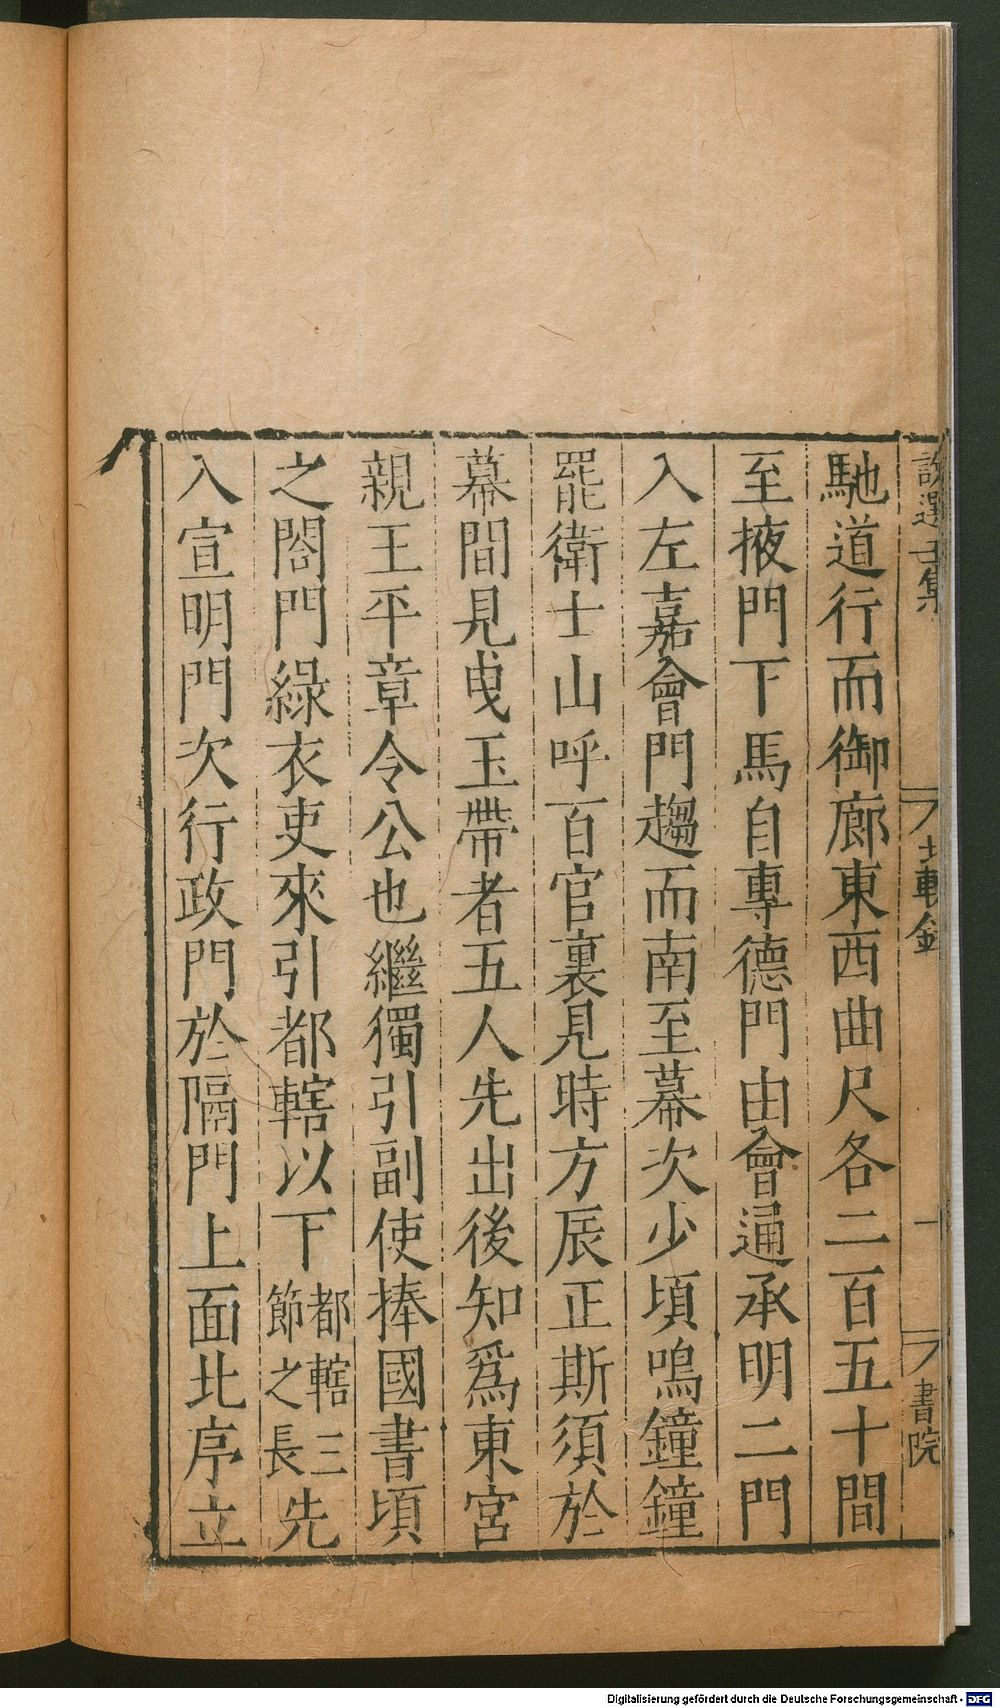 馳道行而御廊東西曲尺各二百五十間
至掖門下馬自專德門由會通承明二門
入左嘉會門趨而南至幕次少頃鳴鐘鐘
罷衛士山呼百官裏見時方辰正斯須於
幕間見曳玉帶者五人先出後知爲東宮
親王平章令公也繼獨引副使捧國書頃
之閤門綠衣吏來引都轄以下都轄三節之長先
入宣明門次行政門於隔門上面北序立
書院
Digitalisierung gefördert durch die Deutsche Forschungsgemeinschaft - DFG